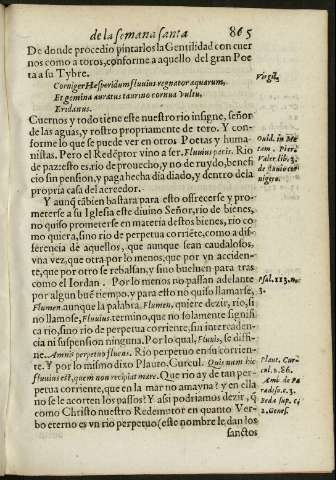 de la semana santa 865
De donde procedio pintarlos la Gentilidad con cuer
nos como a toros, conforme a aquello del gran Poe
ta a su Tybre.
Corniger Hesperidum fluuius regnator aquarum. Virgil.
Et gemina auratus taurino cornua vultu.
Eridanus.
Cuernos y todo tiene este nuestro rio insigne, señor
de las aguas, y rostro propriamente de toro. Y con-
forme lo que se puede ver en otros Poetas y huma-
nistas. Pero el Redẽptor vino a ser. Fluuius pacis. Rio
de paz: esto es rio de prouecho, y no de ruydo, benefi
cio sin pension, y paga hecha dia diado, y dentro de la
propria casa del acreedor.
Ouid. in Me
tam. Pier.
Valer. lib. 3.
nigero.
Y aunq̃ tãbien bastara para esto offrecerse y pro-
meterse a su Iglesia este diuino Señor, rio de bienes,
no quiso prometerse en materia destos bienes, rio co
mo quiera, sino rio de perpetua corriẽte, como a dif-
ferencia de aquellos, que aunque sean caudalosos,
vna vez, que otra por lo menos, que por vn acciden-
te, que por otro se rebalsan, y sino bueluen para tras
como el Iordan. Por lo menos no passan adelante
por algun buẽ tiempo, y para esto no quiso llamarse,
Flumen aunque la palabra. Flumen, quiere dezir, rio, si
no llamose, Fluuius, termino, que no solamente signifi
ca rio, sino rio de perpetua corriente, sin intercaden-
cia ni suspension ninguna. Por lo qual, Fluuis, se diffi-
ne. Amnis perpetuo fluens. Rio perpetuo en su corrien-
te. Y por lo mismo dixo Plauto. Curcul. Quis nam hic
fluuius est, quem non recipiat mare. Que rio ay de tan per-
petua corriente, que en la mar no amayna? y en ella
no se le acorten los passos? Y assi podriamos dezir, q̃
como Christo nuestro Redemptor en quanto Ver-
bo eterno es vn rio perpetuo (este nombre le dan los
Psal. 113. n.
3.
Plaut. Cur
cul. 2. 86.
Amb. de Pa
radiso. c. 3.
Beda sup. c.
2. Genes.
sanctos